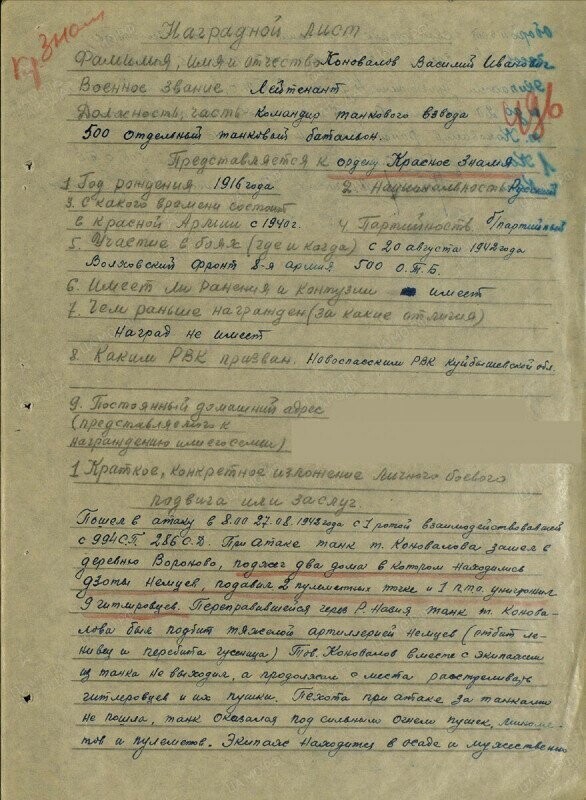 Кр Знам
Наградной лист
Фамилия, имя и отчество Коновалов Василий Иванович
Военное звание Лейтенант
Должность, часть командир танкового взвода
500 отдельный танковый батальон.
Представляется к ордену Красное Знамя
1 Год рождения 1916 года 2. Национальность Русский
3. С какого времени состоит
в Красной Армии с 1940г. 4 Партийность б/партийный
5. Участие в боях (где и когда) с 20 августа 1942 года
Волховский Фронт 8-я армия 500 О.Т.Б.
6. Имеет ли ранения и контузии имеет
7. Чем раньше награжден (за какие отличия)
Наград не имеет
8. Каким РВК призван. Новоспасским РВК Куйбышевской обл.
9. Постоянный домашний адрес
(представляемого к
награждению или его семьи)
1 Краткое, конкретное изложение личного боевого
подвига или заслуг.
Пошел в атаку в 8.00 27.08.1942 года с 1 ротой взаимодействовавшей
с 994 С.П. 286 С.Д. При атаке танк т. Коновалова зашел в
деревню Вороново, поджег два дома в котром находились
дзоты немцев, подавил 2 пулеметных точки и 1 п.т.о. уничтожил
9 гитлеровцев. Переправившейся через р. Навия танк т. Коно-
лова был подбит тяжелой артиллерией немцев (отбит ле-
нивец и перебита гусеница) Тов. Коновалов вместе с экипажем
из танка не выходил, а продолжал с места расстреливать
гитлеровцев и их пушки. Пехота при атаке за танками
не пошла, танк оказался под сильным огнем пушек, миноме-
тов и пулеметов. Экипаж находится в осаде и мужественно